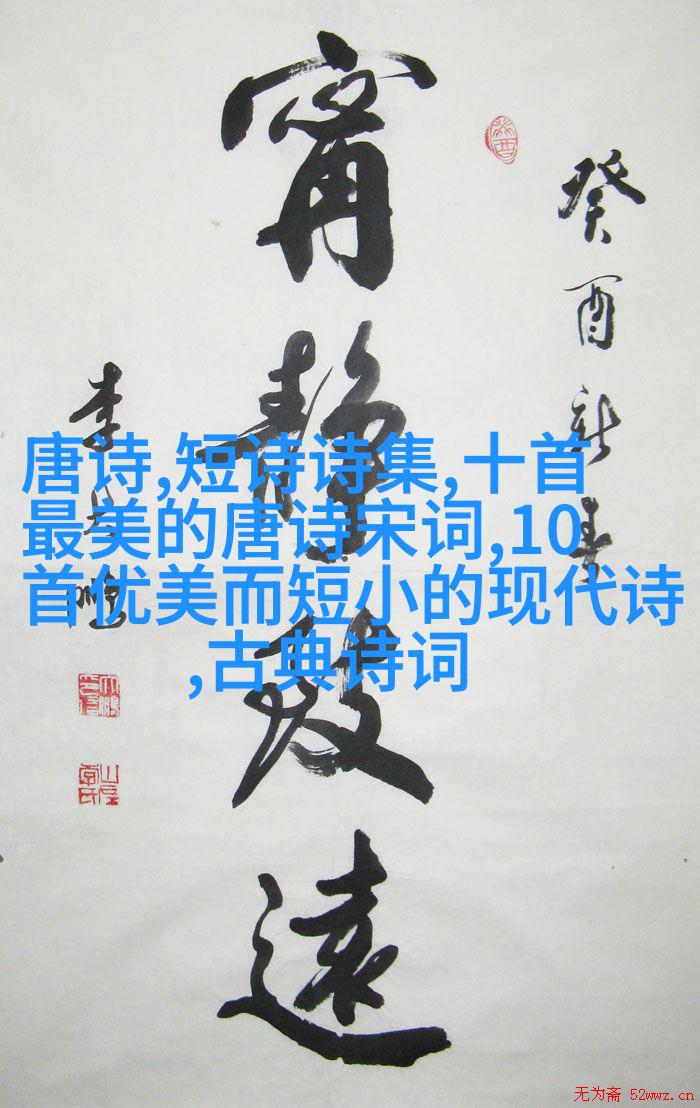 癸酉新春
甯静致遠
李
唐诗,短诗诗集,十首
最美的唐诗宋词,10
首优美而短小的现代诗
,古典诗词
无为斋 52wwz.cn